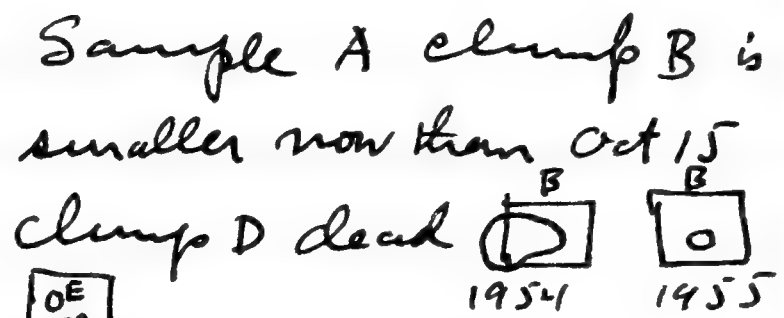 Sample A clump B is
smaller now than Oct 15
clump D dead B B
1954 1955
E